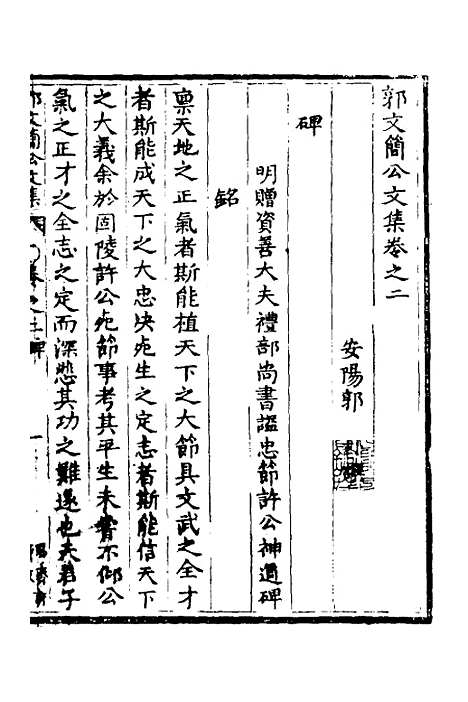 郭文簡公文集卷之二
安陽郭
碑
明贈資善大夫禮部尚書諡忠節許公神道碑
銘
禀天地之正氣者斯能植天下之大節具文武之全才
者斯能成天下之大忠决死生之定志者斯能信天下
之大義余於固陵許公死節事考其平生未嘗不仰公
氣之正才之全志之定而深悲其功之難遂也夫君子
郭文簡公文集 卷之二碑